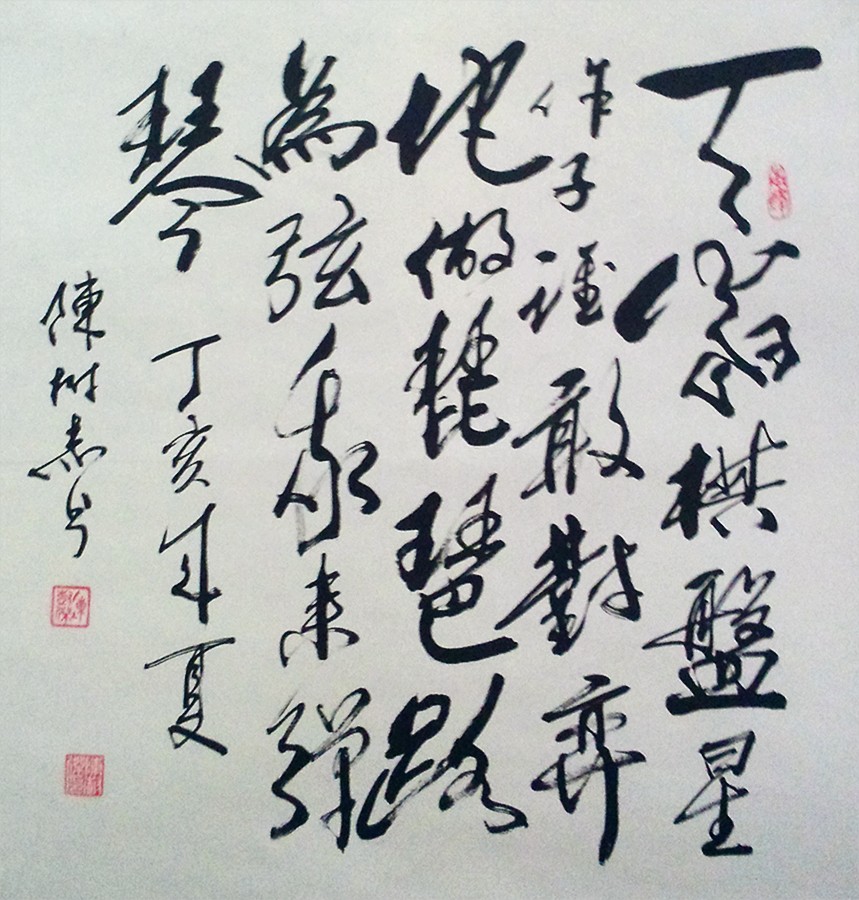 天棋盤星
作子誰敢對弈
地做琵琶路
為弦來彈
琴 丁亥年夏
陳樹志书